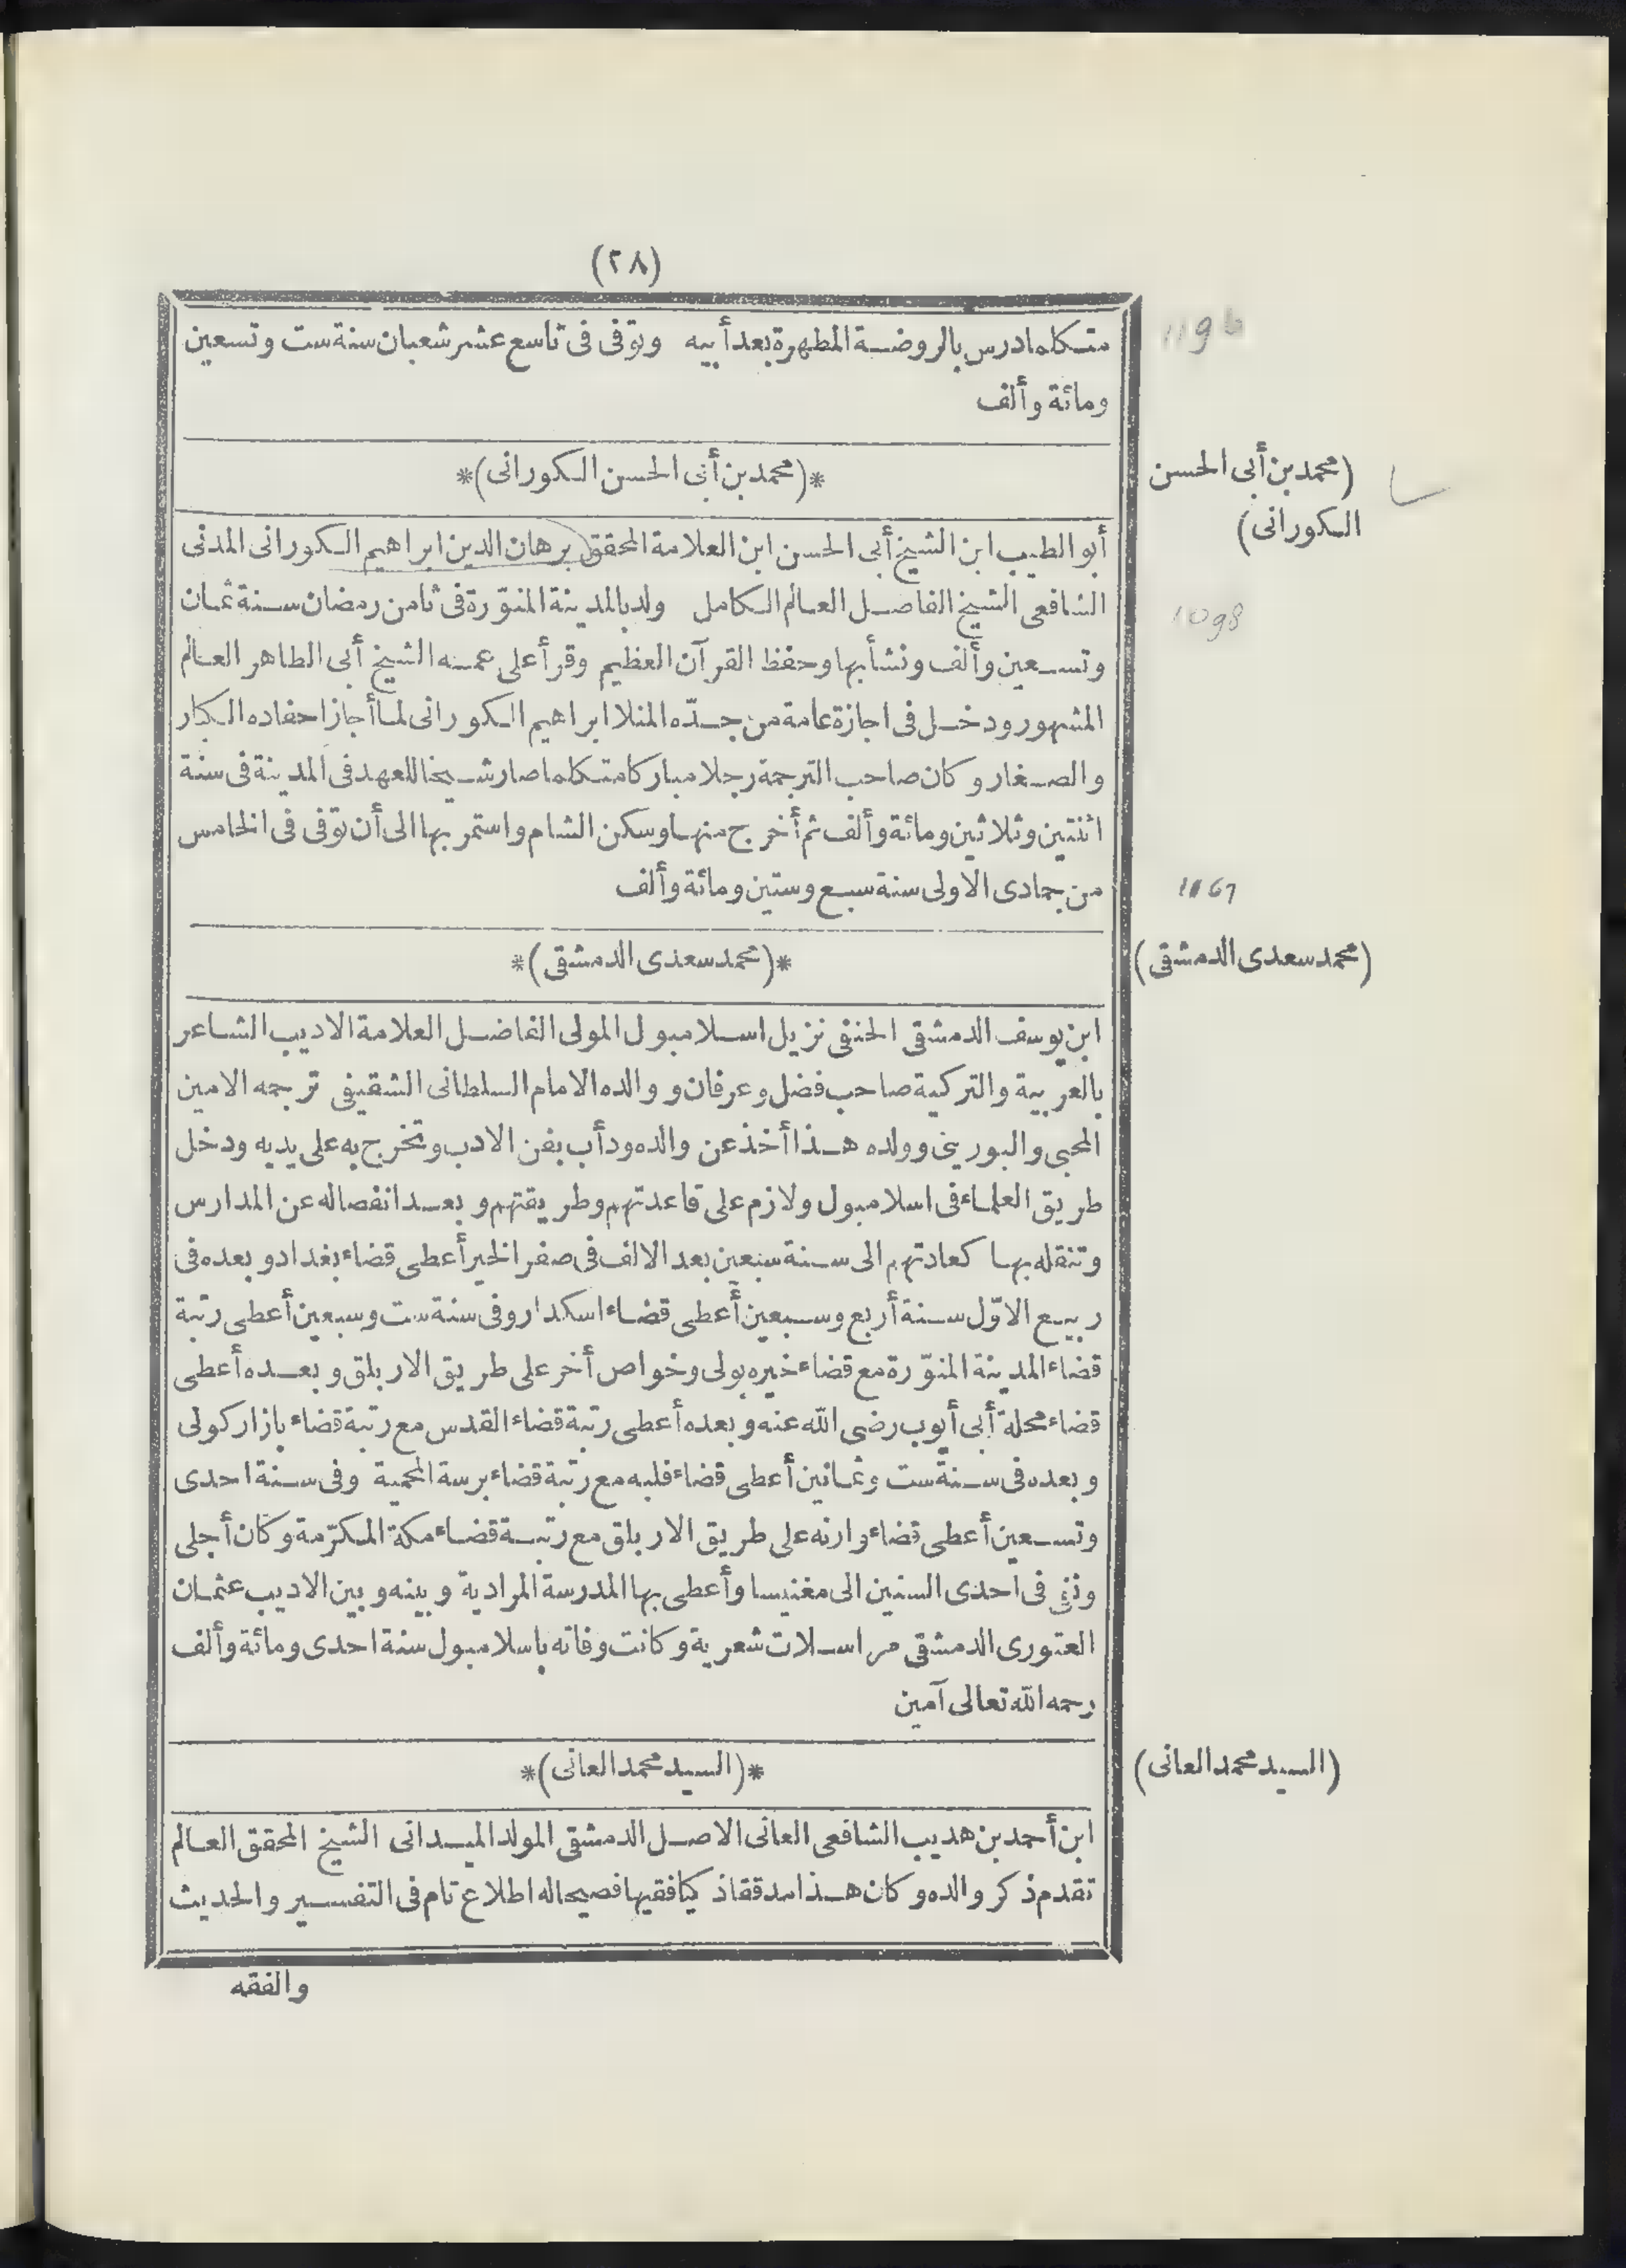 (٢٨)
متكلما درس بالروضة المطهرة بعد أبيه وتوفى فى تاسع عشر شعبان سنة ست وتسعين
1196
ومائة وألف
*(محمد بن أبى الحسن الكورانى)*
(محمد بن أبى الحسن
الكورانى)
أبو الطيب ابن الشيخ أبى الحسن ابن العلامة المحقق برهان الدين ابراهيم الكورانى المدنى
الشافعى الشيخ الفاضل العالم الكامل ولد بالمدينة المنوّرة فى ثامن رمضان سنة ثمان
1098
وتسعين وألف ونشأ بها وحفظ القرآن العظيم وقرأ على عمه الشيخ أبى الطاهر العالم
المشهور ودخل فى اجازة عامة من جدّه المنلا ابراهيم الكورانى لما أجاز احفاده الكبار
والصغار وكان صاحب الترجمة رجلا مباركا متكلما صار شيخا للعهد فى المدينة فى سنة
اثنتين وثلاثين ومائة وألف ثم أخرج منها وسكن الشام واستمر بها الى أن توفى فى الخامس
من جمادى الاولى سنة سبع وستين ومائة وألف
1167
*(محمد سعدى الدمشقى)*
(محمد سعدى الدمشقى)
ابن يوسف الدمشقى الحنفى نزيل اسلامبول المولى الفاضل العلامة الاديب الشاعر
بالعربية والتركية صاحب فضل وعرفان ووالده الامام السلطانى الشقيفى ترجمه الامين
المحبى والبورينى وولده هذا أخذ عن والده ودأب بفن الادب وتخرج به على يديه ودخل
طريق العلماء فى اسلامبول ولازم على قاعدتهم وطريقتهم وبعد انفصاله عن المدارس
وتنقله بها كعادتهم الى سنة سبعين بعد الالف فى صفر الخير أعطى قضاء بغداد وبعده فى
ربيع الاوّل سنة أربع وسبعين أعطى قضاء اسكدار وفى سنة ست وسبعين أعطى رتبة
قضاء المدينة المنوّرة مع قضاء خيره بولى وخواص أخر على طريق الاربلق وبعده أعطى
قضاء محلة أبى أيوب رضى الله عنه وبعده أعطى رتبة قضاء القدس مع رتبة قضاء بازاركولى
وبعده فى سنة ست وثمانين أعطى قضاء فلبه مع رتبة قضاء برسة المحمية وفى سنة احدى
وتسعين أعطى قضاء وارنه على طريق الاربلق مع رتبة قضاء مكة المكرّمة وكان أجلى
ونفى فى احدى السنين الى مغنيسا وأعطى بها المدرسة المرادية وبينه وبين الاديب عثمان
العتورى الدمشقى مراسلات شعرية وكانت وفاته باسلامبول سنة احدى ومائة وألف
رحمه الله تعالى آمين
*(السيد محمد العانى)*
(السيد محمد العانى)
ابن أحمد بن هديب الشافعى العانى الاصل الدمشقى المولد الميدانى الشيخ المحقق العالم
تقدم ذكر والده وكان هذا مدققا ذكيا فقيها فصيحا له اطلاع تام فى التفسير والحديث
والفقه